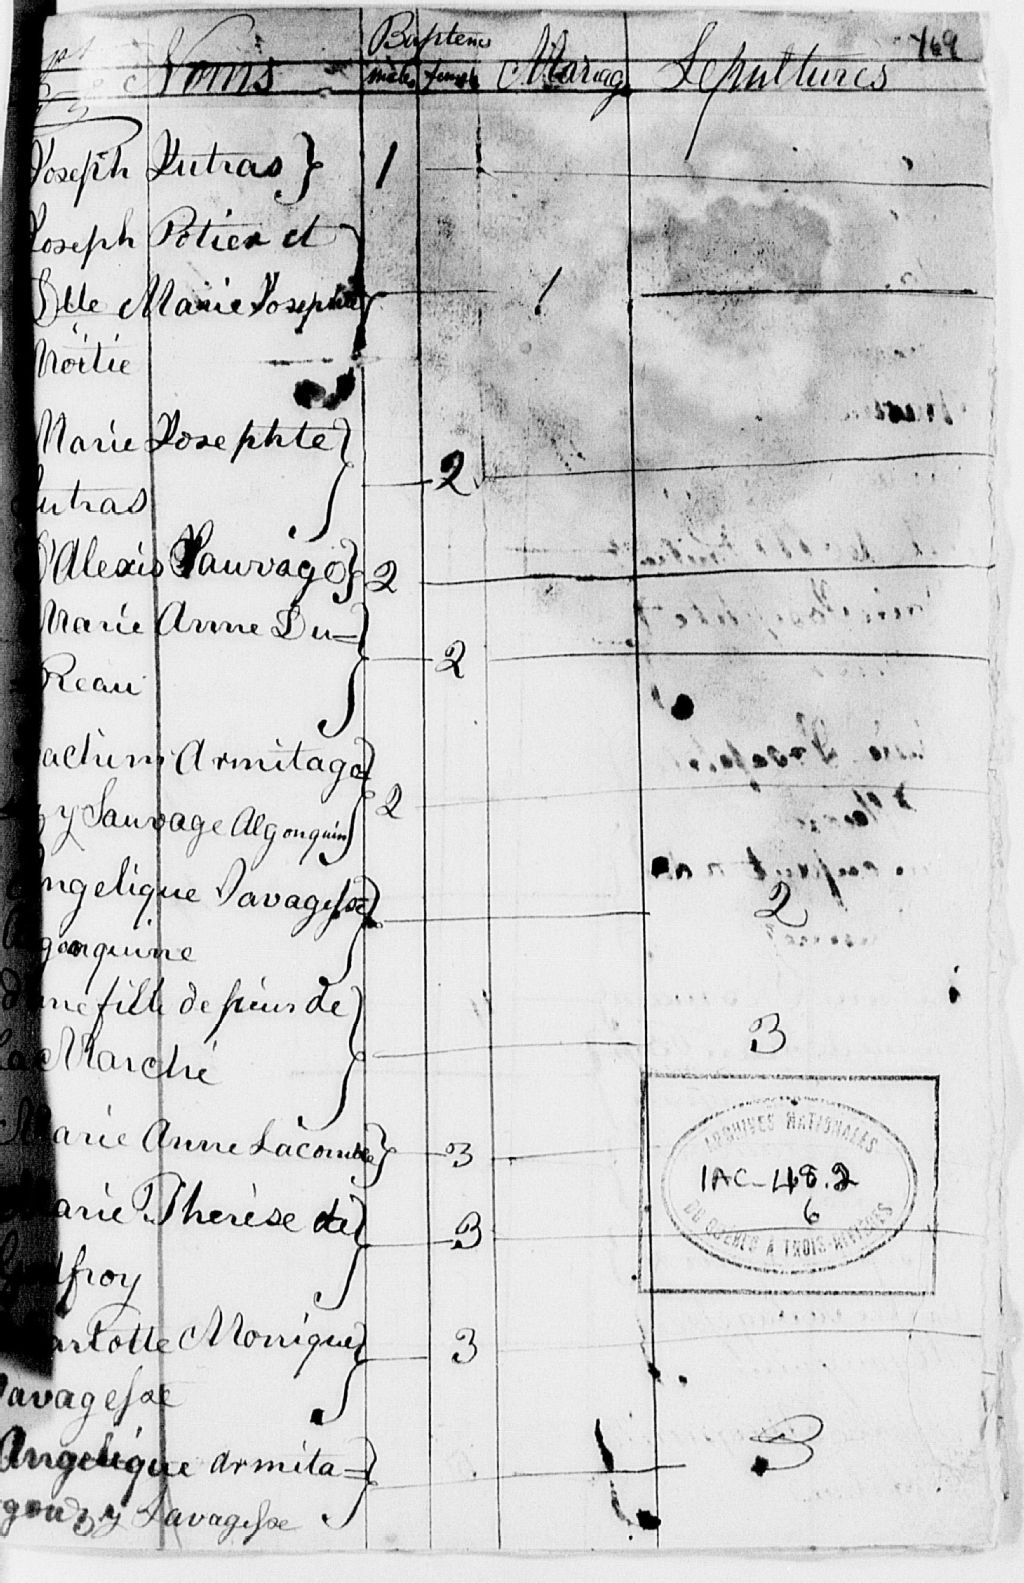 Baptemes
169
Noms males femelle Mariag Sepultures
Joseph Dutras } 1
Joseph Potier et
Dlle Marie Josephte 1
Noitie
Marie Josephte
utras 2
Alexis Sauvage } 2
Marie Anne Du=
Reau 2
achim Armitage
zy Sauvage Algonquin 2
Angelique Savagesse
gonquine 2
une fille de sieur de
La Marché 3
Marie Anne Lacombe } 3
Marie Therése de
dfroy 3
arlotte Monique
Savagesse 3
Angelique armita=
gouzy Savagesse 3
ARCHIVES NATIONALES
IAC-48.2
6
DU QUEBEC A TROIS-RIVIERES